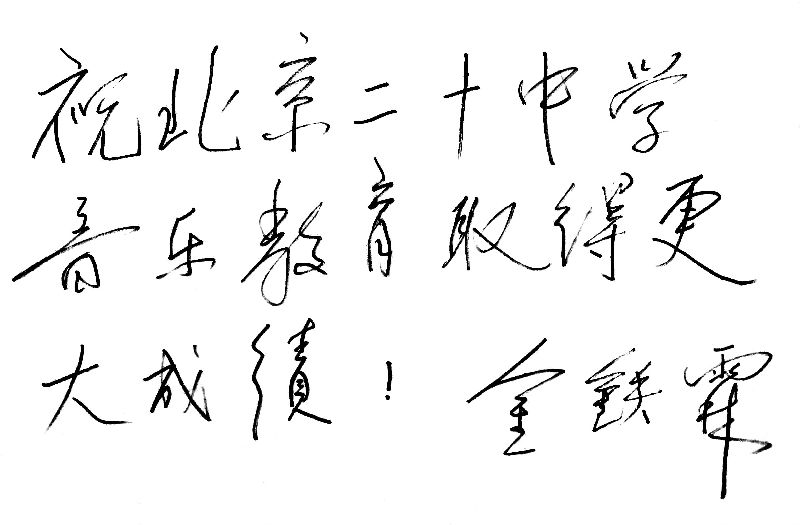 祝北京二十中学
音乐教育取得更
大成绩！ 金铁霖